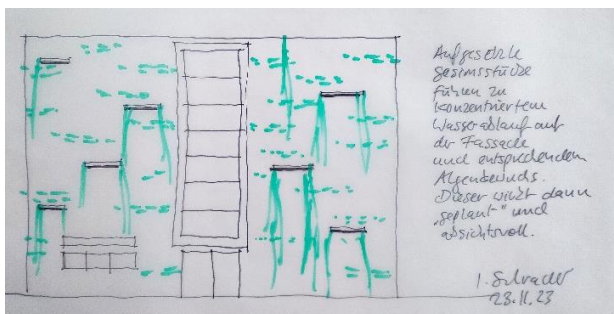 Aufgesetzte
Gesimsstücke
führen zu
konzentriertem
Wasserablauf auf
der Fassade
und entsprechendem
Algenbewuchs.
Dieser wirkt dann
„geplant" und
absichtsvoll.
I. Schrader
23.11.23